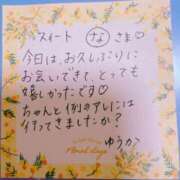 スィート な さま♡
今日は、お久しぶりに
お会いできて、とっても
嬉しかったです♡
ちゃんと例のアレには
行ってきましたか?
ゆうか